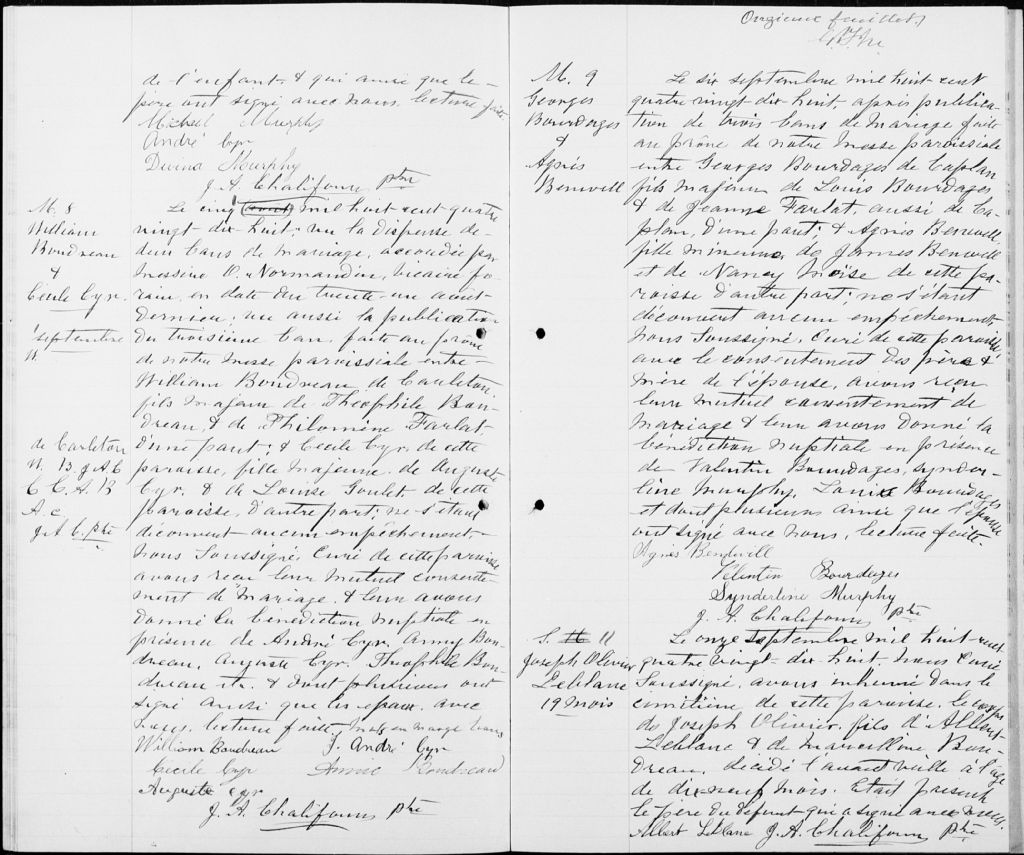 de l'enfant & qui ainsi que le
père ont signé avec nous. lecture faite
Michael Murphy
André Cyr
Divina Murphy
J. A. Chalifour ptre
M. 8
William
Boudreau
&
Cécile Cyr.
septembre
de Carleton
J. A. C. ptre
Le cinq mil huit cent quatre
vingt dix huit, vu la dispense de
deux bans de mariage, accordée par
messire O. Normandin, vicaire fo-
rain, en date du trente-un août
dernier; vu aussi la publication
du troisième ban faite au prône
de notre messe paroissiale entre
William Boudreau de Carleton,
fils majeur de Théophile Bou-
dreau, & de Philomène Farlat,
d'une part; & Cécile Cyr de cette
paroisse, fille majeure de Auguste
Cyr, & de Louise Goulet de cette
paroisse, d'autre part; ne s'étant
découvert aucun empêchement,
nous Soussigné, Curé de cette paroisse
avons reçu leur mutuel consente-
ment de mariage, & leur avons
donné la bénédiction nuptiale en
présence de André Cyr, Anny Bou-
dreau, Auguste Cyr, Théophile Bou-
dreau etc. & dont plusieurs ont
signé ainsi que les époux avec
nous, lecture faite. mots en marge bons
William Boudreau J. André Cyr
Cecile Cyr Annie Boudreau
Auguste Cyr
J. A. Chalifour ptre
Onzième feuillet.
M. 9
Georges
Bourdages
&
Agnès
Benwell
Le six septembre mil huit cent
quatre vingt dix huit, après publica-
tion de trois bans de mariage faite
au prône de notre messe paroissiale
entre Georges Bourdages de Caplan
fils majeur de Louis Bourdages
& de Jeanne Farlat, aussi de Ca-
plan, d'une part; & Agnès Benwell,
fille mineure de James Benwell
et de Nancy Moïse de cette pa-
roisse d'autre part; ne s'étant
découvert aucun empêchement,
nous Soussigné, Curé de cette paroisse
avec le consentement des père &
mère de l'épouse, avons reçu
leur mutuel consentement de
mariage & leur avons donné la
bénédiction nuptiale en présence
de Valentin Bourdages, Synder-
line Murphy, Louise Bourdages
et dont plusieurs ainsi que l'épouse
ont signé avec nous, lecture faite.
Agnès Bendwill
Velentin Bourdages
Synderline Murphy
J. A. Chalifour ptre
S. 11
Joseph Olivier
Leblanc
19 mois
Le onze septembre mil huit-cent
quatre vingt-dix huit, nous Curé
Soussigné, avons inhumé dans le
cimetière de cette paroisse, le corps
de Joseph Olivier, fils d'Albert
Leblanc & de Marcelline Bou-
dreau, décédé l'avant veille à l'âge
de dix-neuf mois. Etait présent
le père du défunt qui a signé avec nous.
Albert Leblanc J. A. Chalifour ptre